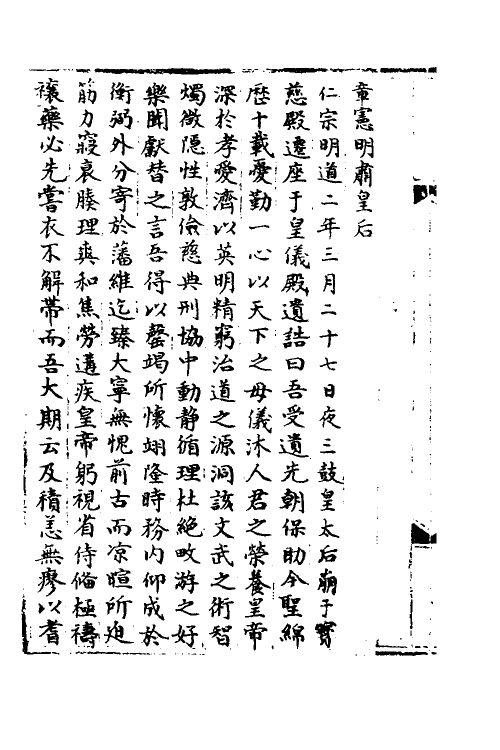 章憲明肅皇后
仁宗明道二年三月二十七日夜三鼓皇太后崩于寳
慈殿遷座于皇儀殿遺誥曰吾受遺先朝保助今聖綿
歴十載憂勤一心以天下之母儀沐人君之榮養皇帝
深於孝愛濟以英明精窮治道之源洞該文武之術智
燭微隠性敦儉慈典刑協中動静循理杜絶畋游之好
樂聞獻替之言吾得以罄竭所懷翊隆時務内仰成於
衡弼外分寄於藩維迄臻大寧無愧前古而凉暄所迫
筋力寖衰腠理爽和焦勞遘疾皇帝躬視省侍俻極禱
禳藥必先嘗衣不解帶而吾大期云及積恙無瘳以耆